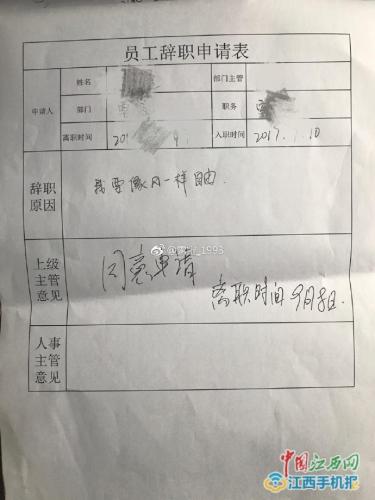 员工辞职申请表
姓名
部门主管
申请人
部门
职务
离职时间 201
入职时间 2017.1.10
辞职
原因
我要像风一样自由.
上级
主管
意见
同意申请
离职时间9月8日.
人事
主管
意见
_1993
中国江西网
江西手机报